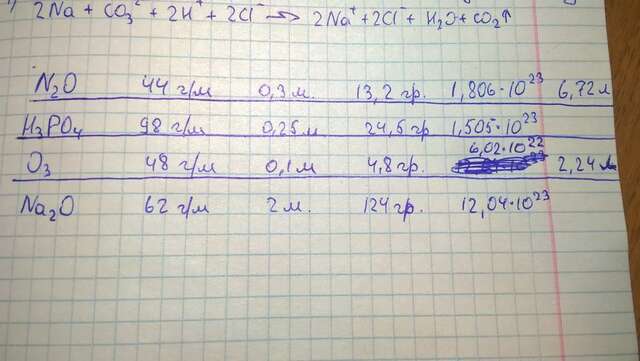 2Na + CO₃²⁻ + 2H⁺ + 2Cl⁻ → 2Na⁺ + 2Cl⁻ + H₂O + CO₂↑
N₂O 44 г/м 0,3 м. 13,2 гр. 1,806·10²³ 6,72 л
H₃PO₄ 98 г/м 0,25 м 24,5 гр 1,505·10²³
6,02·10²²
O₃ 48 г/м 0,1 м 4,8 гр. 2,24 л
Na₂O 62 г/м 2 м. 124 гр. 12,04·10²³